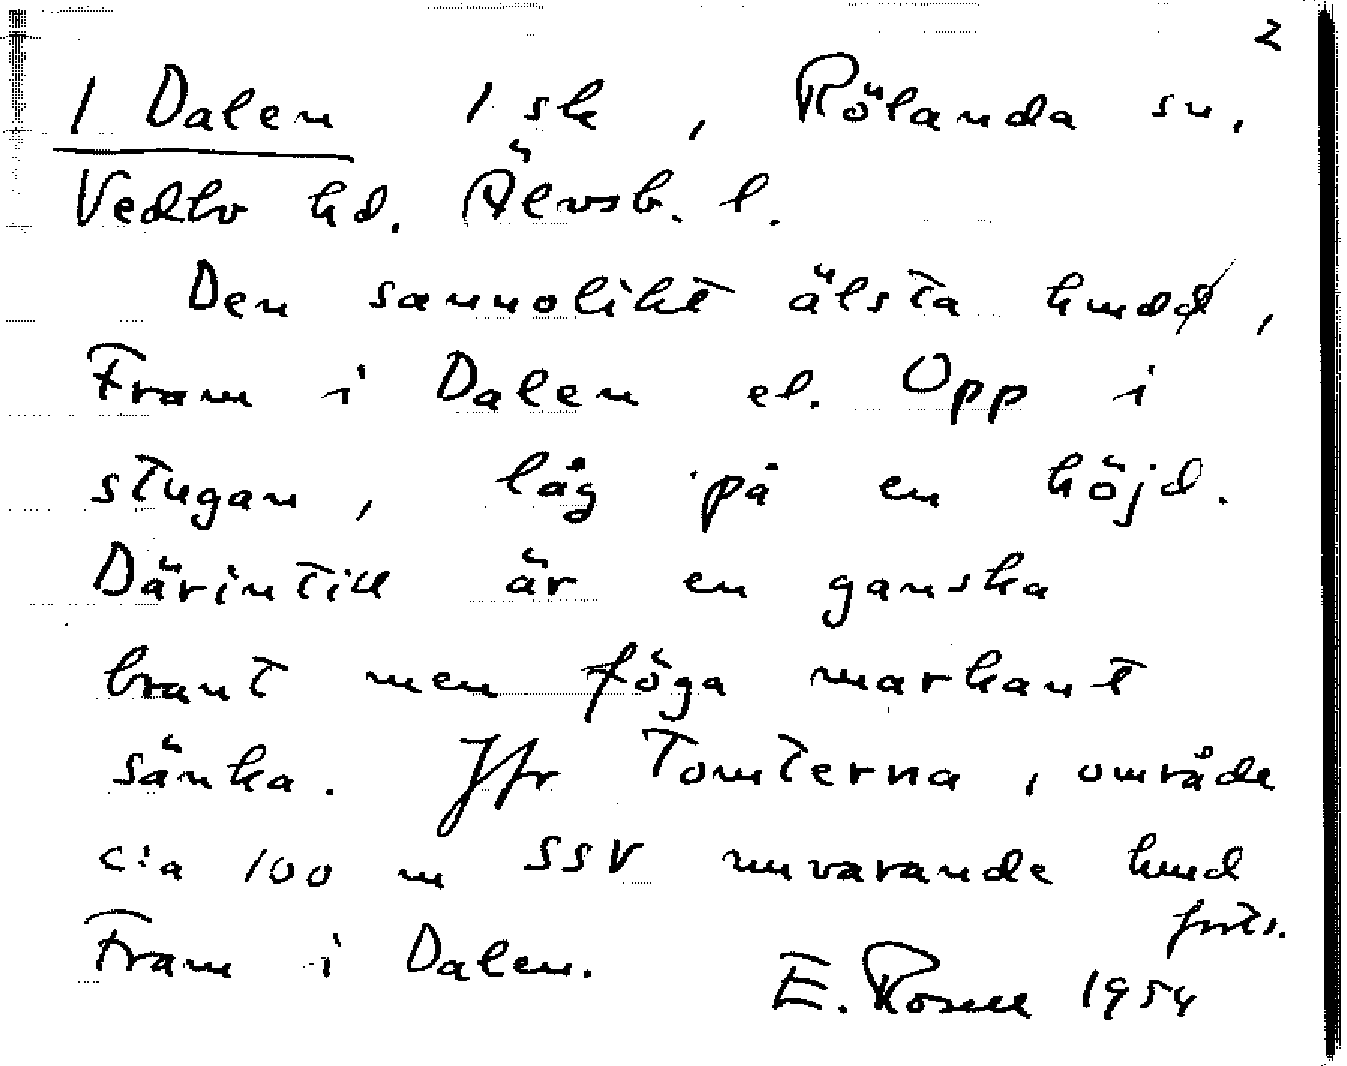 2
1 Dalen 1 sk , Rölanda sn.
Vedbo hd. Älvsb. l.
Den sannolikt älsta hmdd,
Fram i Dalen el. Opp i
stugan, låg på en höjd.
Därintill är en ganska
brant men föga markant
sänka. Jfr Tomterna, område
c:a 100 m SSV nuvarande hmd
Fram i Dalen. forts.
E. Rosell 1954